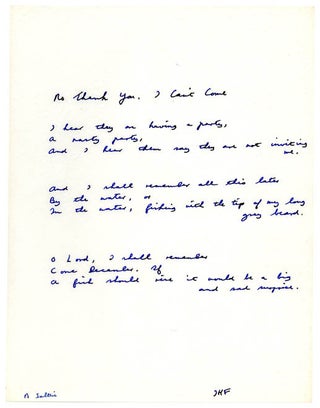 No Thank You. I Can't Come
I hear they are having a party,
A nasty party,
And I hear them say they are not inviting
me.
And I shall remember all this later
By the water, or
In the water, fishing with the tip of my long
grey beard.
O Lord, I shall remember
Come December. If
A fish should rise it would be a big
and sad surprise.
IHF